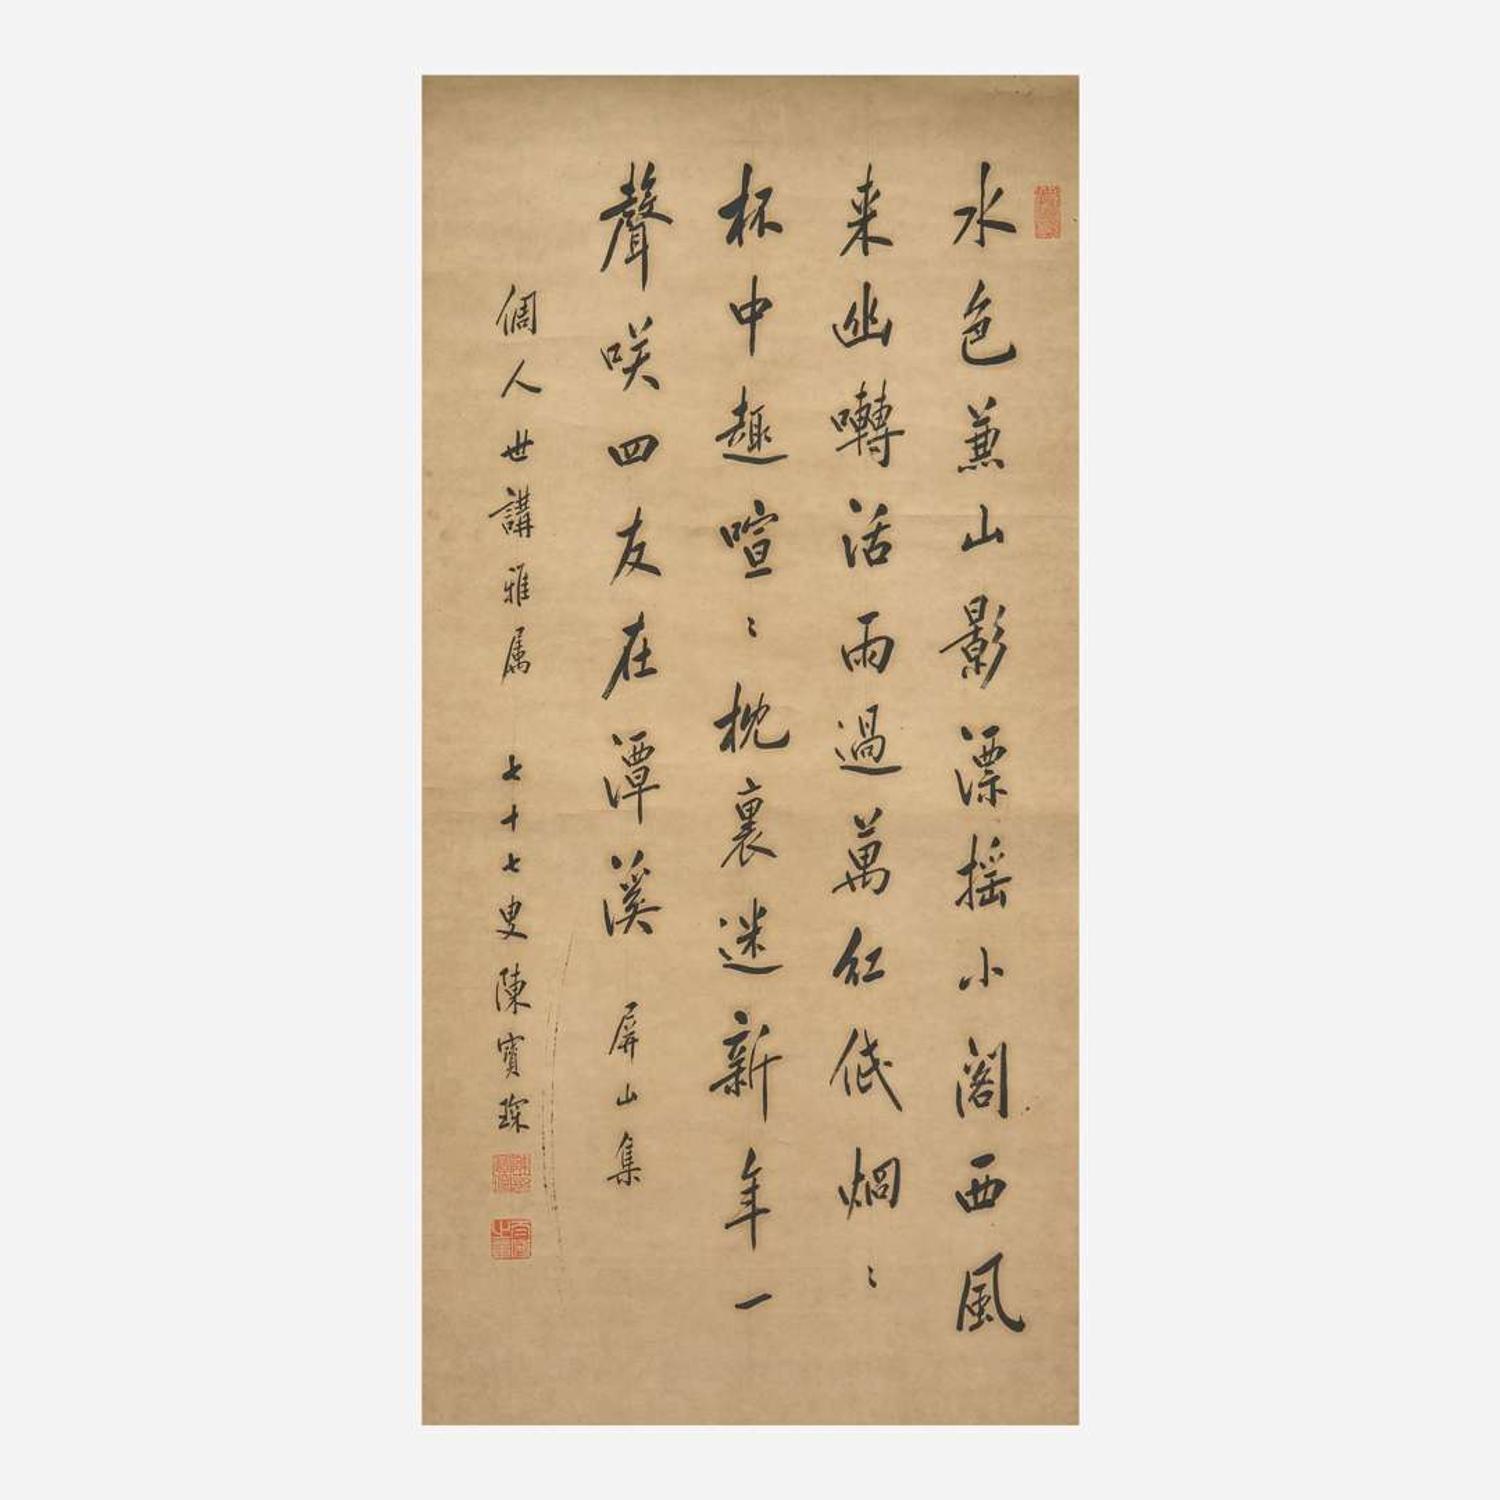 水色兼山影漂摇小阁西風
来幽囀活雨過萬红低烟〻
杯中趣喧〻枕裏迷新年一
聲咲四友在潭溪 屏山集
倜人世講雅属 七十七叟陳寶琛